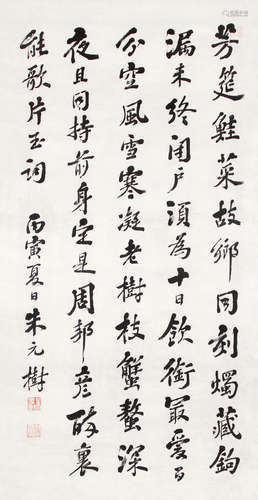 芳筵鮭菜故鄉同刻燭藏鉤
漏未終閉戶須為十日飲銜最愛百
分空風雪寒凝老樹枝蟹螯深
夜且同持前身定是周邦彥醉裏
能歌片玉詞
丙寅夏日朱元樹